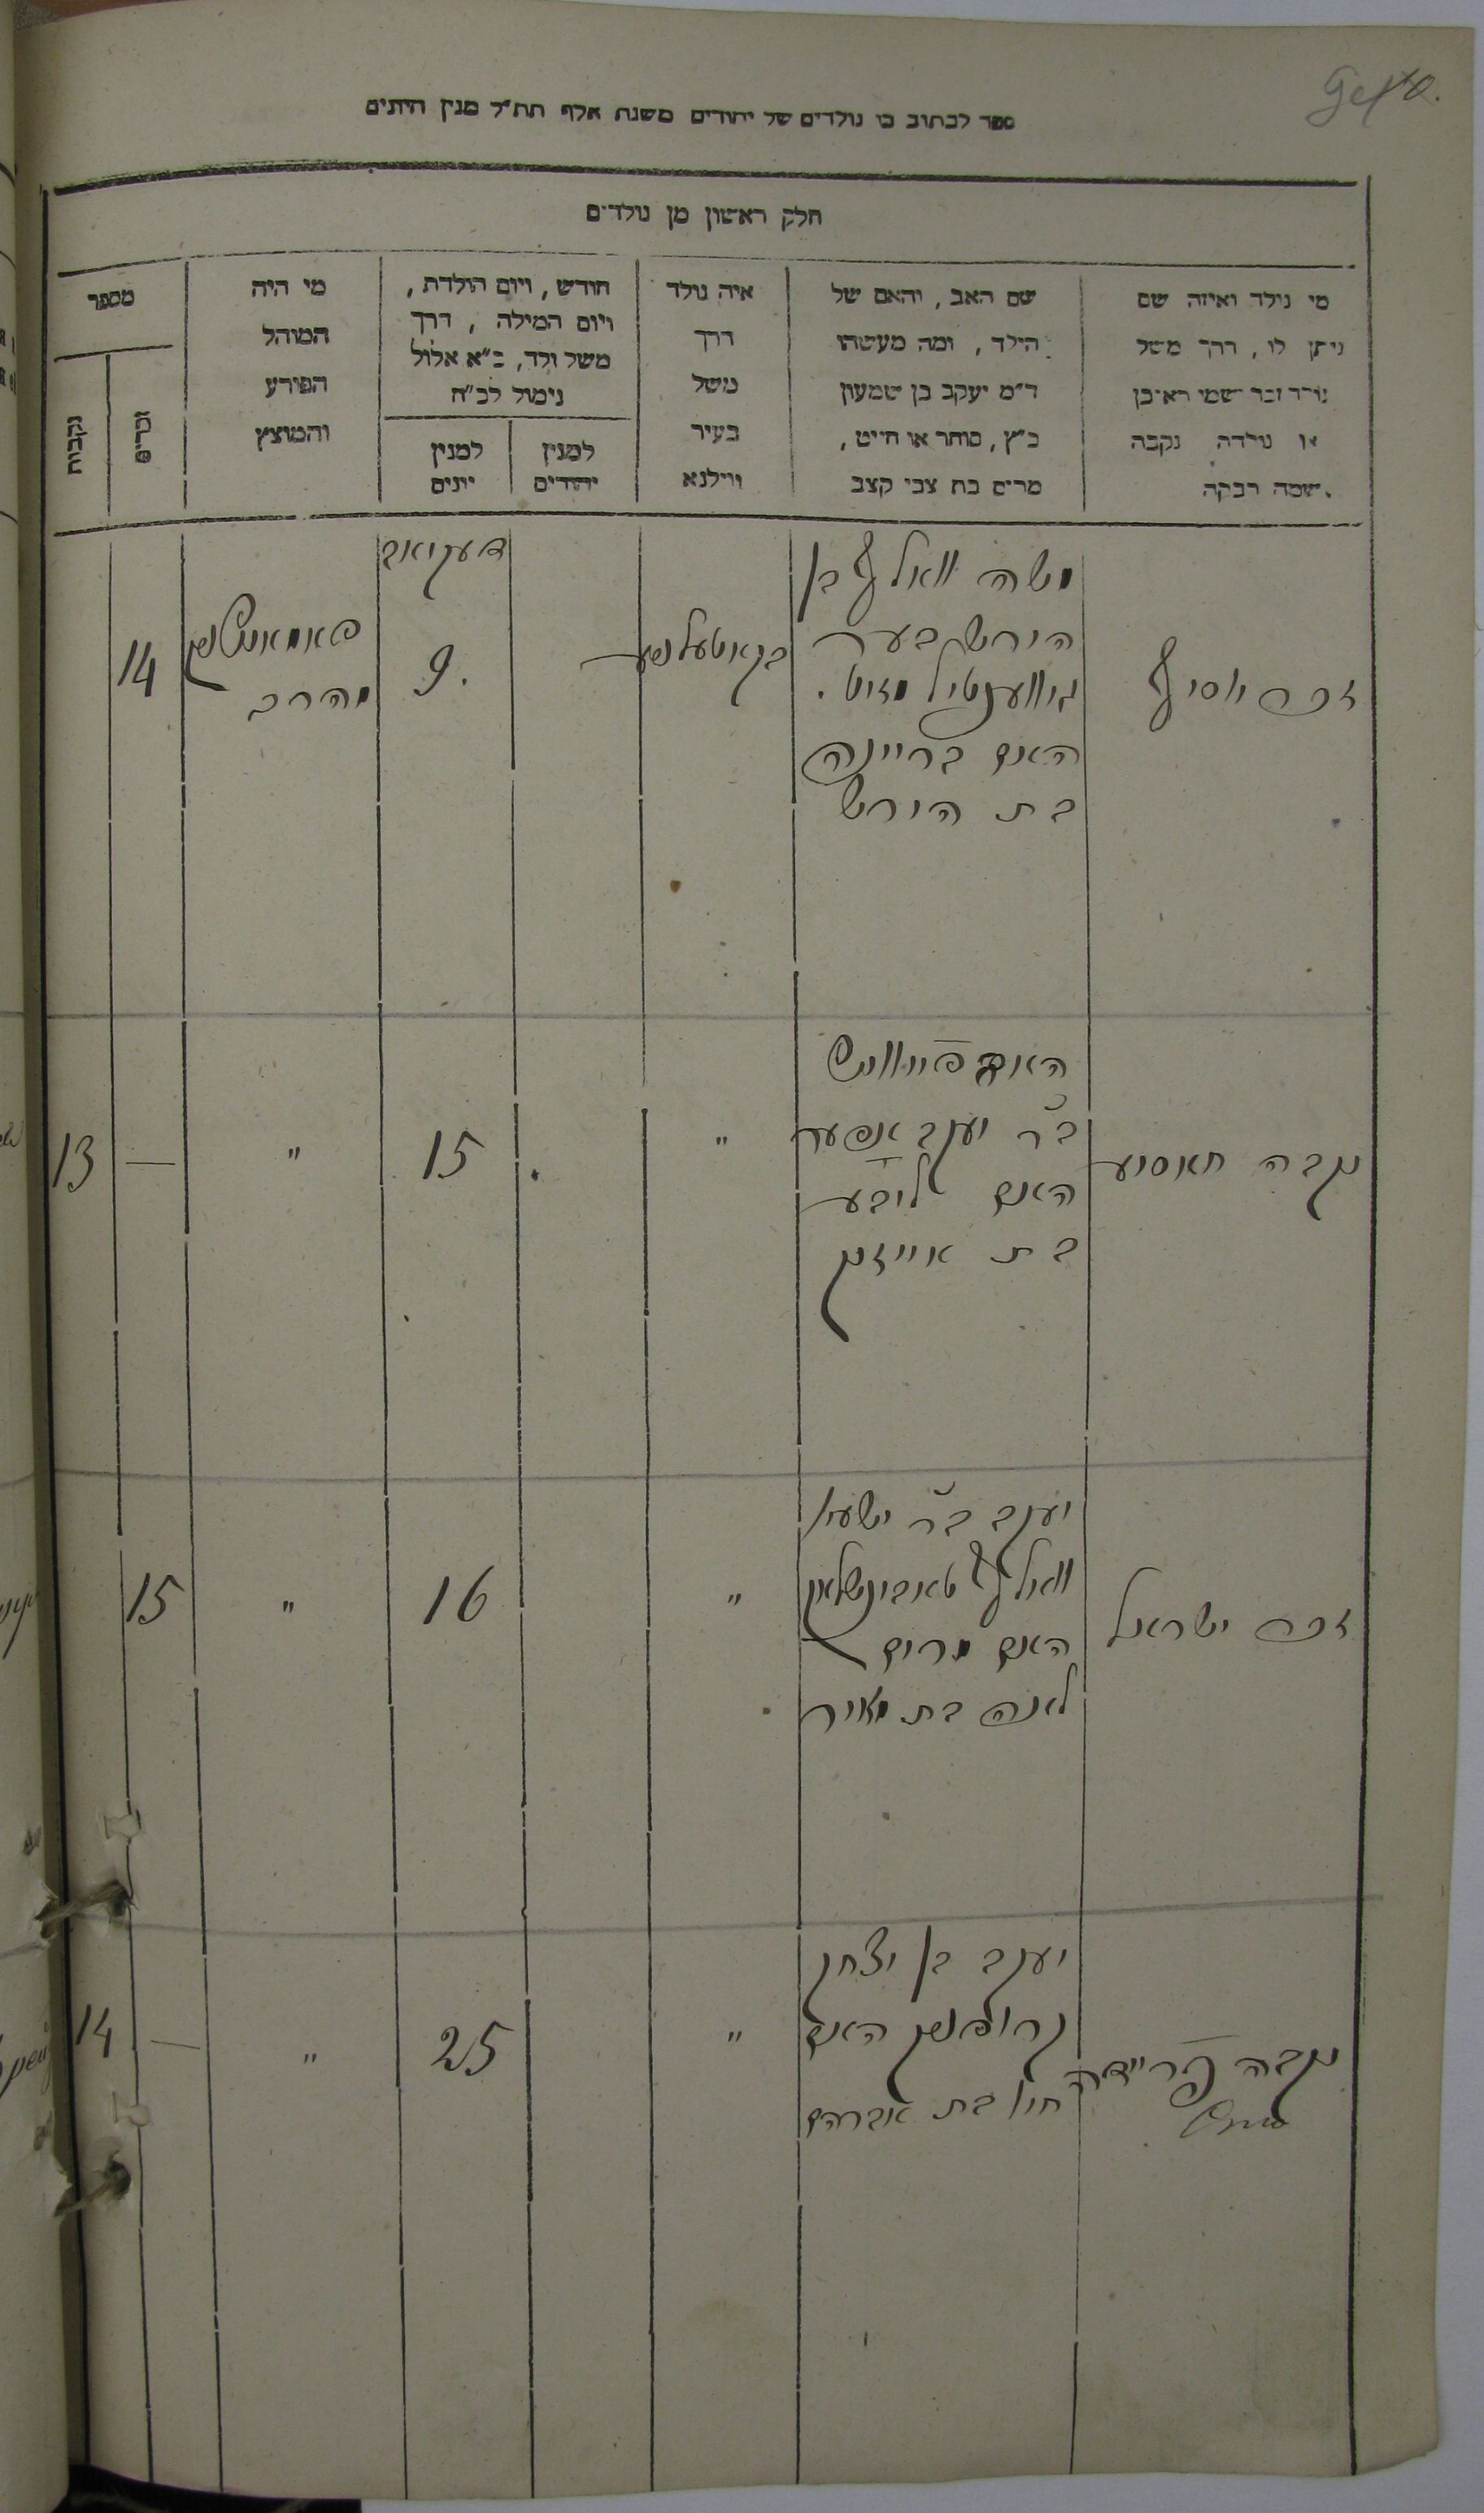 ספר לכתוב בו נולדים של יהודים משנת אלף תת״ל מנין היתים
חלק ראשון מן נולדים
מי נולד ואיזה שם
ניתן לו, דרך משל
נולד זכר שמי ראובן
או נולדה נקבה
שמה רבקה.
שם האב, והאם של
הילד, ומה מעשהו
ד״מ יעקב בן שמעון
כ״ץ, סוחר או חייט,
מרים בת צבי קצב
איה נולד
דרך
משל
בעיר
ווילנא
חודש, ויום הולדת,
ויום המילה, דרך
משל ולד, כ״א אלול
נימול לכ״ח
למנין
יהודים
למנין
יונים
מי היה
המוהל
הפורע
והמוצץ
מספר
זכרים
נקבות
זכר יוסיף
משה וואלף בן
הירש בער
האם בריינה
בת הירש
9.
14
נקבה
האב
ב״ר יעקב
האם ליבע
בת אייזיק
"
15
"
—
13
זכר ישראל
יעקב ב״ר ישעי'
וואלף
האם מרים
לאה בת מאיר
"
16
"
15
נקבה פריידה
יעקב בן יצחק
האם
חי' בת אברהם
"
25
"
—
14